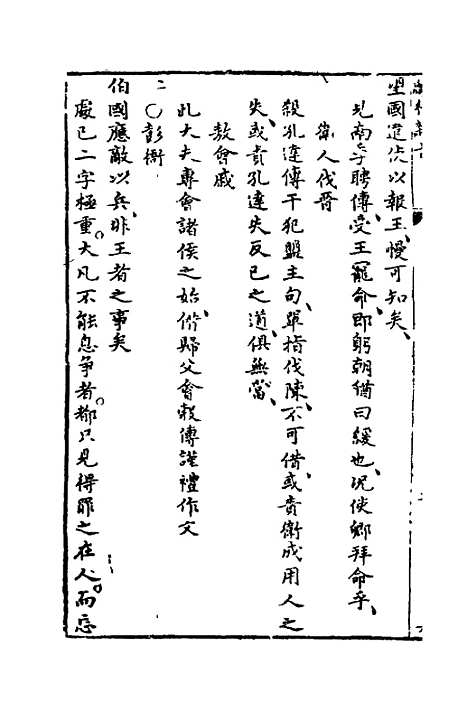 坐國遣使以報王慢可知矣
見南季聘傳受王寵命即躬朝猶曰緩也况使卿拜命乎
衛人伐晉
殺孔達傳干犯盟主句單指伐陳不可借或責衛成用人之
失或責孔達失反已之道俱無當
敖會戚
此大夫專會諸侯之始偹歸父會穀傳謹禮作文
二〇彭衙
伯國應敵以兵非王者之事矣
處已二字極重大凡不能息争者都只見得罪之在人而忘